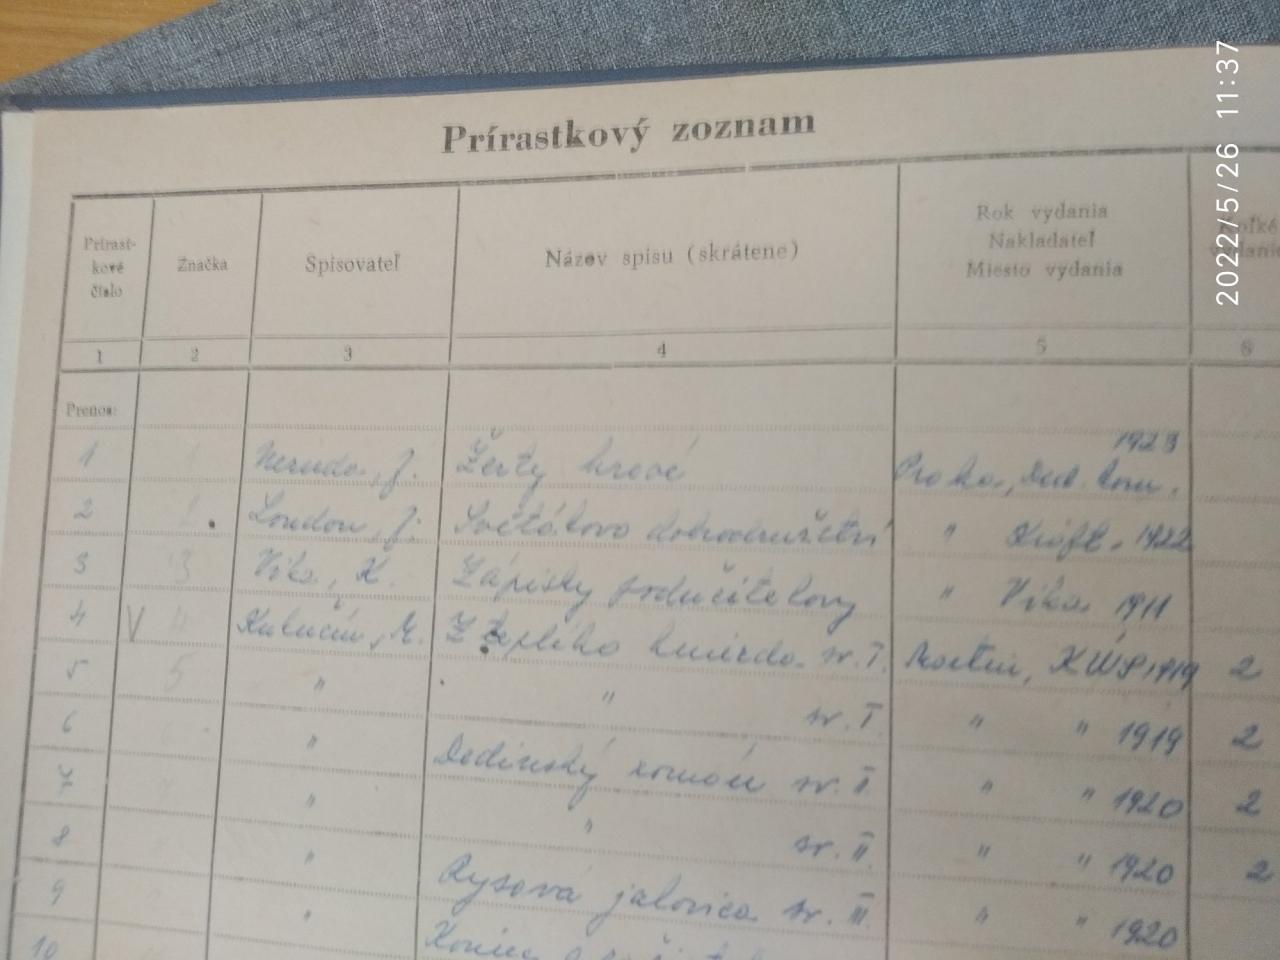 2022/5/26 11:37
Prírastkový zoznam
Prírast-
kové
číslo
Značka
Spisovateľ
Názov spisu (skrátene)
Rok vydania
Nakladateľ
Miesto vydania
1 2 3 4 5 6
Prenos:
1 Neruda, J. Žerty hravé 1923
2 London, J. " 1922
3 3 Vika, K. Zápisky podučitelovy " Vika 1911
4 V Kukučín, M. Z teplého hniezda sv. I. Martin, 1919 2
5 5 " " sv. I. " " 1919 2
6 " Dedinský román sv. II. " " 1920 2
7 " " sv. II. " " 1920 2
8 " Rysavá jalovica sv. III. " " 1920
9 "
10